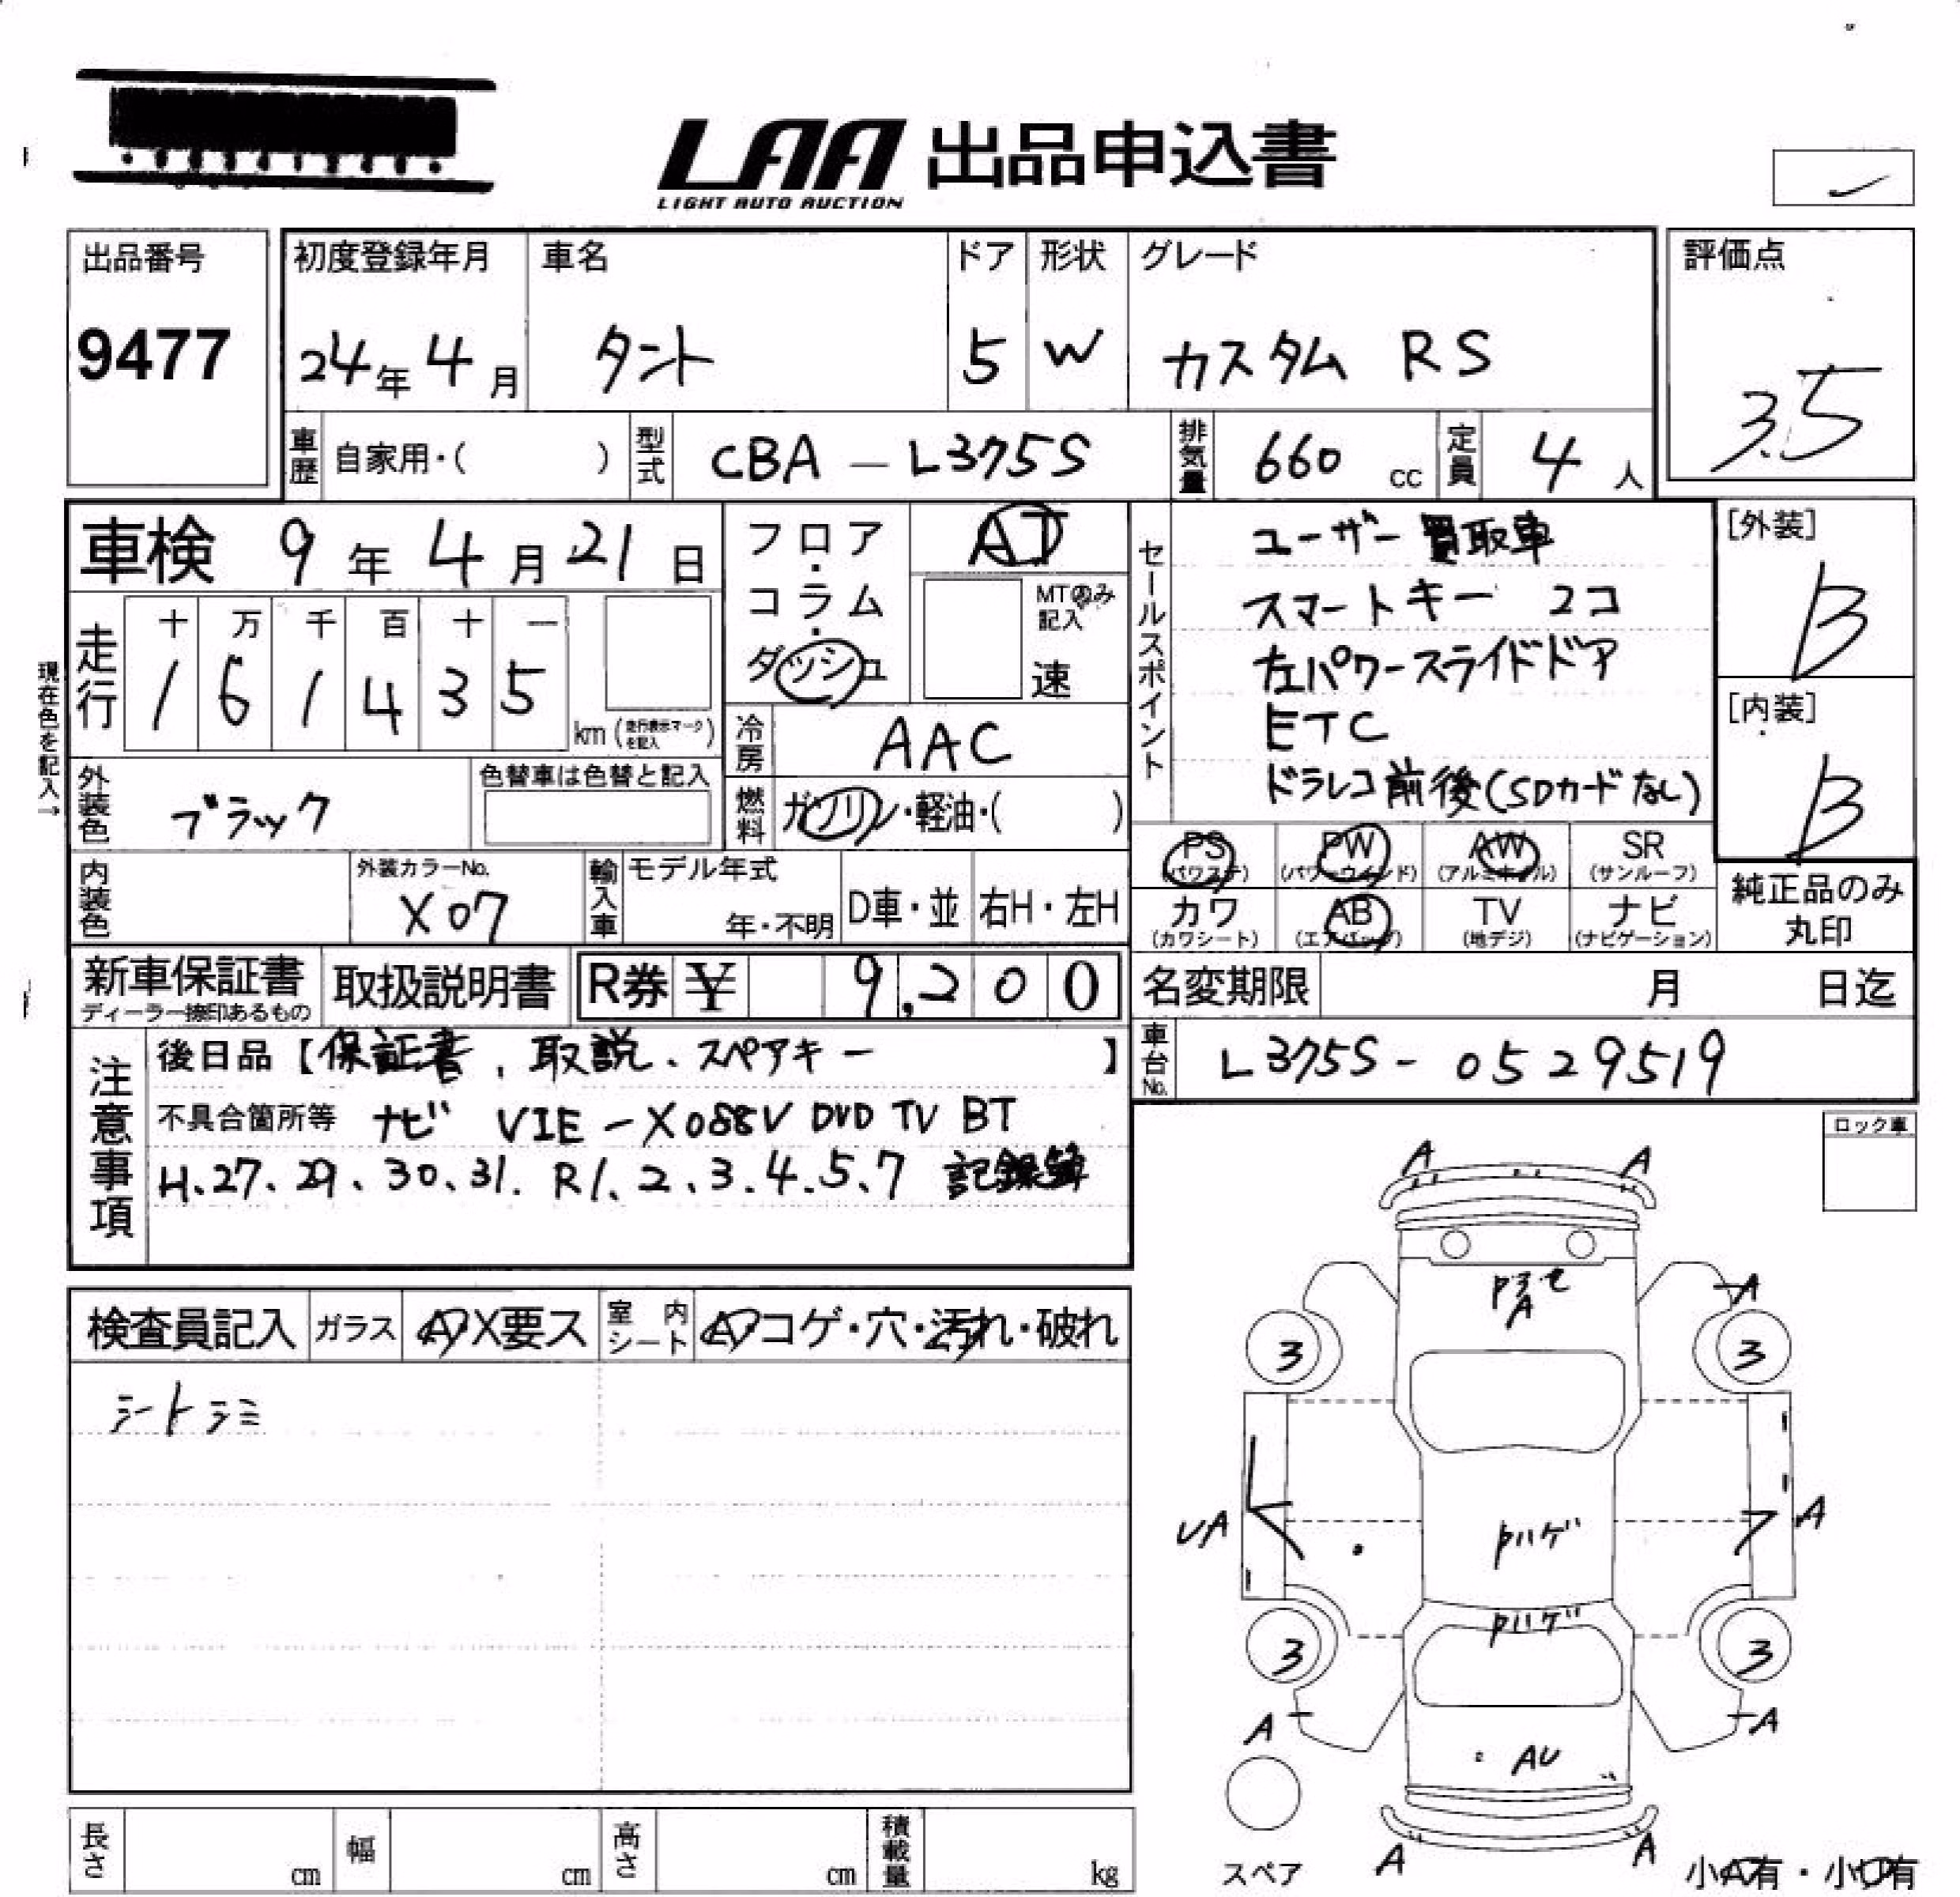 LAA 出品申込書
LIGHT AUTO AUCTION
出品番号
9477
初度登録年月
24年 4月
車名
タント
ドア
5
形状
W
グレード
カスタム RS
評価点
3.5
車歴 自家用・( )
型式 CBA-L375S
排気量 660 cc
定員 4 人
車検 9年 4月 21日
走行
十 万 千 百 十 一
1 6 1 4 3 5 km (走行表示マークを記入)
現在色を記入→
外装色 ブラック
色替車は色替と記入
内装色
外装カラーNo.
X07
フロア・コラム・ダッシュ
AT
MTのみ記入
速
冷房 AAC
燃料 ガソリン・軽油・( )
輸入車
モデル年式
年・不明
D車・並
右H・左H
セールスポイント
ユーザー買取車
スマートキー 2コ
左パワースライドドア
ETC
ドラレコ前後(SDカードなし)
[外装]
B
[内装]
B
PS
(パワステ)
PW
(パワーウインド)
AW
(アルミホイル)
SR
(サンルーフ)
カワ
(カワシート)
AB
(エアバッグ)
TV
(地デジ)
ナビ
(ナビゲーション)
純正品のみ
丸印
新車保証書
ディーラー捺印あるもの
取扱説明書
R券 ¥ 9,200
名変期限 月 日迄
車台No. L375S-0529519
注意事項
後日品【保証書、取説、スペアキー 】
不具合箇所等 ナビ VIE-X088V DVD TV BT
H.27、29、30、31. R1、2、3.4.5、7 記録簿
ロック車
検査員記入
ガラス A・X要ス
室内シート A・コゲ・穴・汚れ・破れ
シートシミ
A A
A
A
3 3
VA A
Pハゲ
Pハゲ
3 3
A A
AU
A A
スペア
小A有・小U有
長さ cm
幅 cm
高さ cm
積載量 kg